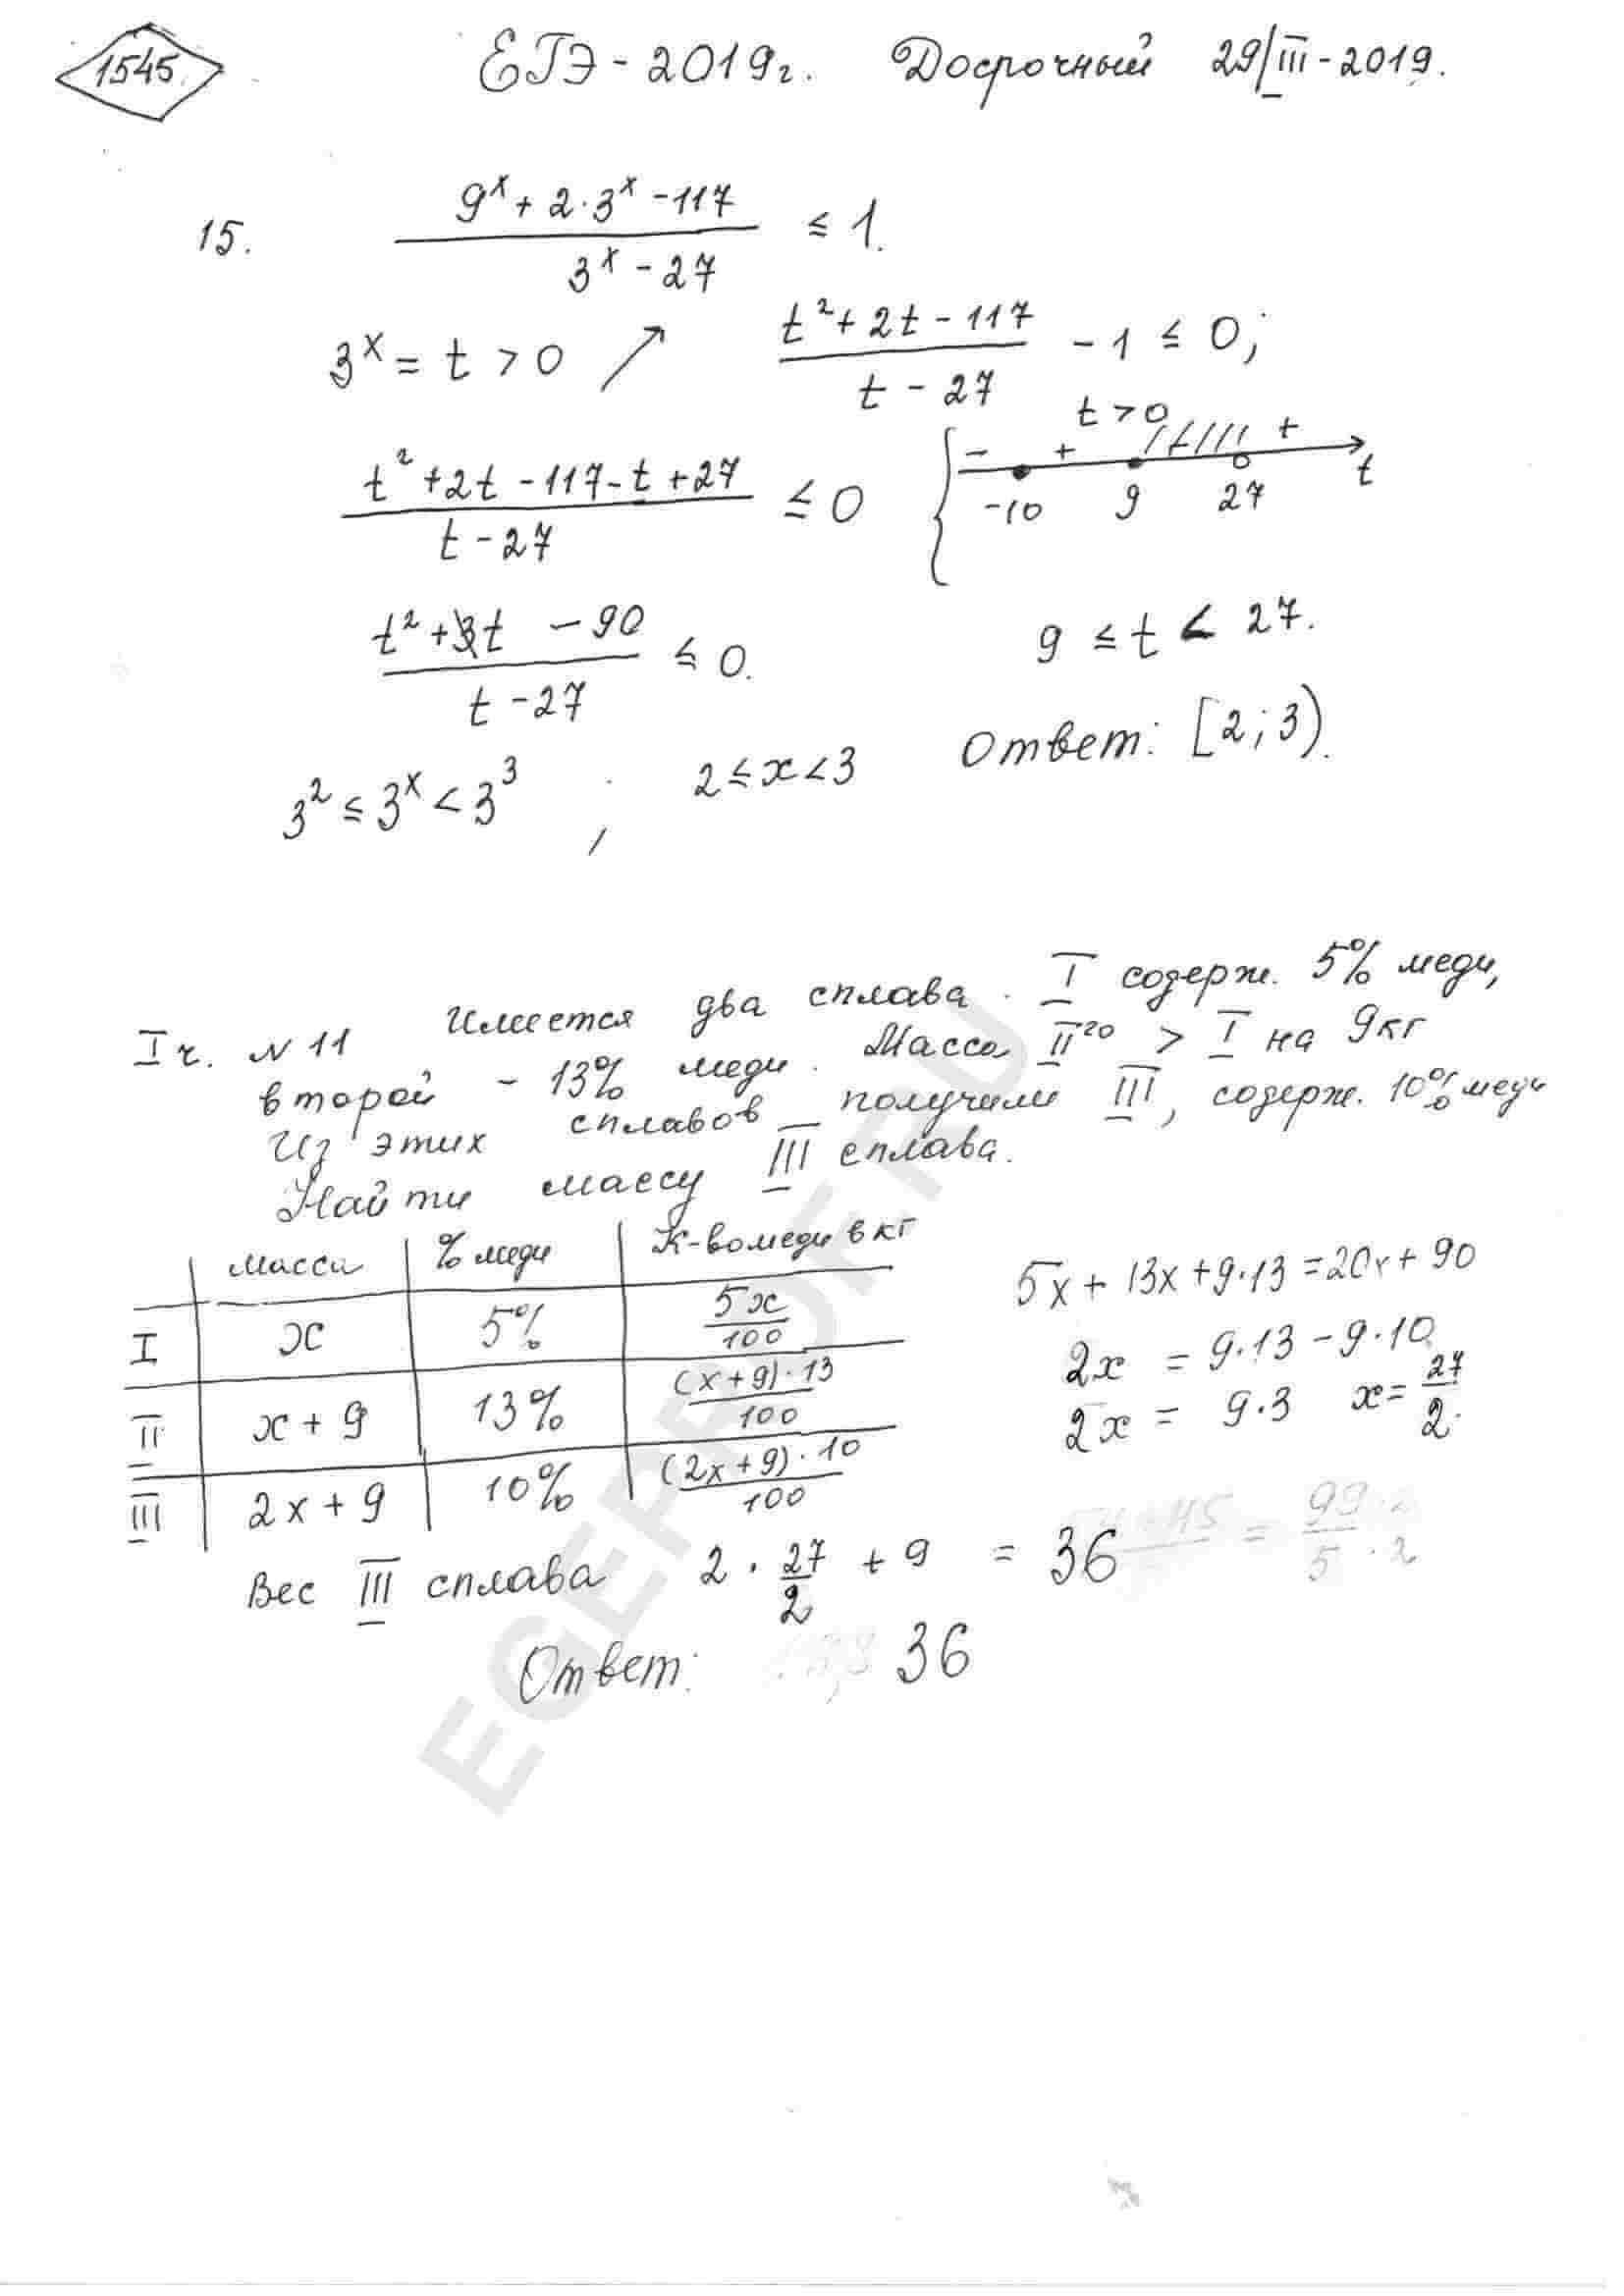 1545.
ЕГЭ - 2019г. Досрочный 29/III - 2019.
15. (9^x + 2·3^x - 117)/(3^x - 27) ≤ 1.
3^x = t > 0 ↗ (t² + 2t - 117)/(t - 27) - 1 ≤ 0;
t > 0
(t² + 2t - 117 - t + 27)/(t - 27) ≤ 0 { - + + t
-10 9 27
(t² + t - 90)/(t - 27) ≤ 0. 9 ≤ t < 27.
3² ≤ 3^x < 3³ , 2 ≤ x < 3 Ответ: [2; 3).
I ч. N 11 Имеется два сплава. I содерж. 5% меди,
второй - 13% меди. Масса II го > I на 9кг
Из этих сплавов получили III, содерж. 10% меди
Найти массу III сплава.
масса % меди К-во меди в кг
I x 5% 5x/100
II x + 9 13% (x+9)·13/100
III 2x + 9 10% (2x+9)·10/100
5x + 13x + 9·13 = 20x + 90
2x = 9·13 - 9·10
2x = 9·3 x = 27/2.
Вес III сплава 2 · 27/2 + 9 = 36
Ответ: 36
EGEPROF.RU